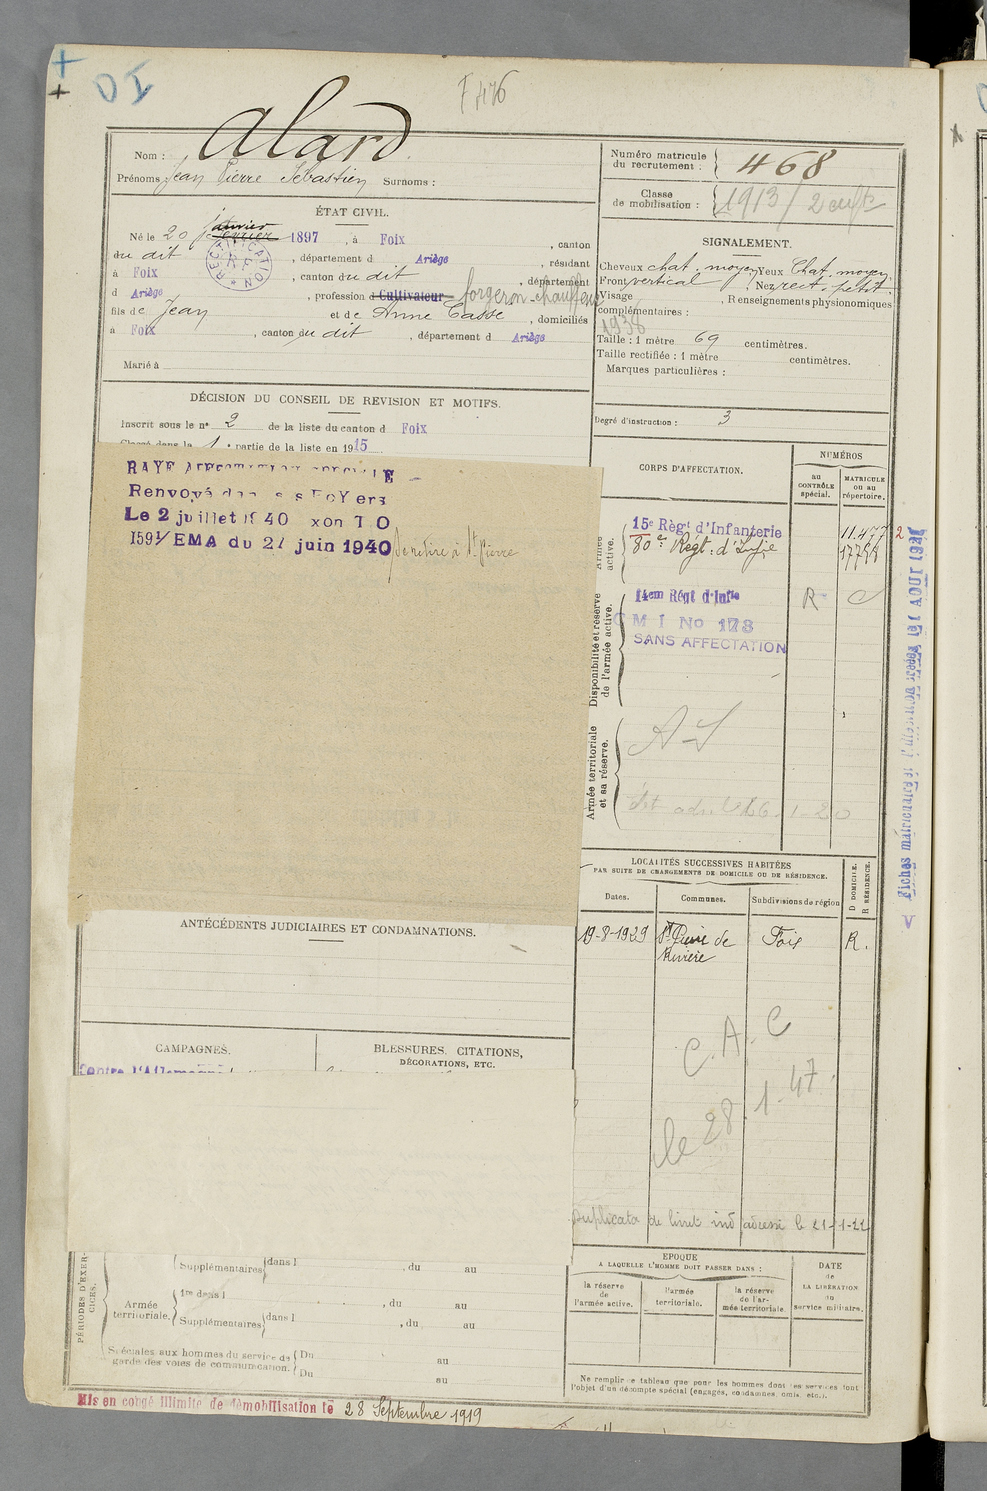 +
+
OI
F 476
Nom : Alard
Prénoms Jean Pierre Sébastien Surnoms :
ÉTAT CIVIL.
janvier
Né le 20 février 1897, à Foix, canton
du dit, département d Ariège, résidant
à Foix, canton du dit, département
d Ariège, profession d Cultivateur forgeron-chauffeur
fils de Jean et de Anne Casse, domiciliés
à Foix, canton du dit, département d Ariège
Marié à
RECTIFICATION
DÉCISION DU CONSEIL DE REVISION ET MOTIFS.
Inscrit sous le n° 2 de la liste du canton d Foix
Classé dans la 1e partie de la liste en 1915
RAYE
Renvoyé dans ses FoYers
Le 2 juillet 1940
159 /EMA du 21 juin 1940 Se retire à St Pierre
ANTÉCÉDENTS JUDICIAIRES ET CONDAMNATIONS.
CAMPAGNES.
Contre l'Allemagne
BLESSURES, CITATIONS,
DÉCORATIONS, ETC.
PÉRIODES D'EXERCICES.
Supplémentaires dans l , du au
Armée territoriale.
1re dans l , du au
Supplémentaires dans l , du au
Spéciales aux hommes du service de garde des voies de communication.
Du au
Du au
Mis en congé illimité de démobilisation le 28 Septembre 1919
Numéro matricule
du recrutement : 468
Classe
de mobilisation : 1913 / 2 enfts
SIGNALEMENT.
Cheveux chat. moyen Yeux Chat. moyen
Front vertical Nez rect. petit.
Visage , Renseignements physionomiques
complémentaires :
1938
Taille : 1 mètre 69 centimètres.
Taille rectifiée : 1 mètre centimètres.
Marques particulières :
Degré d'instruction : 3
CORPS D'AFFECTATION.
NUMÉROS
au
CONTRÔLE
spécial.
MATRICULE
ou au
répertoire.
Armée
active.
15e Règt d'Infanterie 11.477
80e Régt. d'Infie
2
Disponibilité et réserve
de l'armée active.
14em Régt d'Infie R
C M I No 178
SANS AFFECTATION
Armée territoriale
et sa réserve.
Fiches matriculaires
AOUT
LOCALITÉS SUCCESSIVES HABITÉES
PAR SUITE DE CHANGEMENTS DE DOMICILE OU DE RÉSIDENCE.
Dates.
Communes.
Subdivisions de région
D DOMICILE.
R RÉSIDENCE.
19-8-1929 St Pierre de Foix R.
Rivière
C.A.C
le 28.1.47.
Duplicata de livret ind adressé le 21-1-22
EPOQUE
A LAQUELLE L'HOMME DOIT PASSER DANS :
la réserve
de
l'armée active.
l'armée
territoriale.
la réserve
de l'ar-
mée territoriale.
DATE
de
LA LIBÉRATION
du
service militaire.
Ne remplir ce tableau que pour les hommes dont les services font
l'objet d'un décompte spécial (engagés, condamnés, omis, etc.).